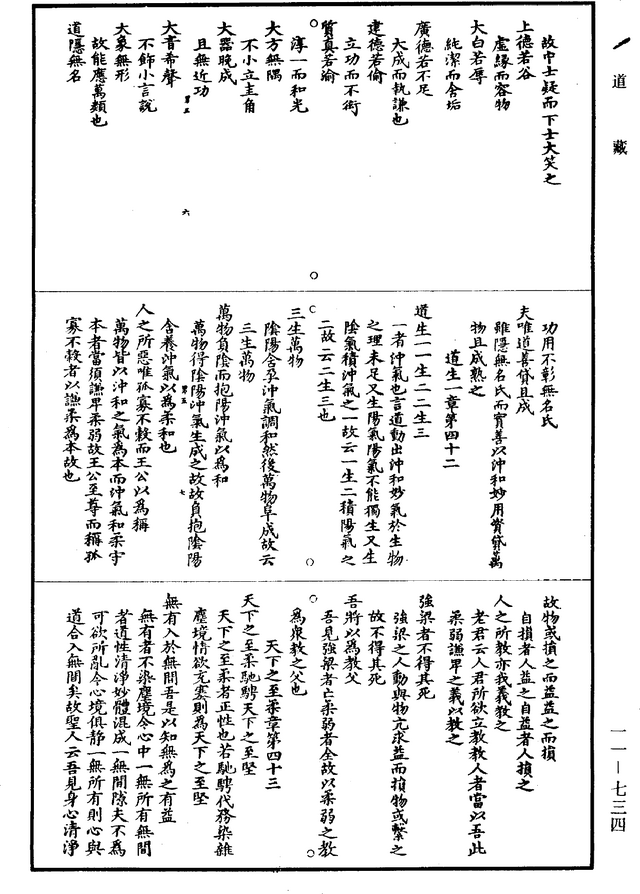 道藏
故中士疑而下士大笑之
上德若谷
虛緣而容物
大白若辱
純潔而含垢
廣德若不足
大成而執謙也
建德若偷
立功而不衒
質真若渝
淳一而和光
大方無隅
不小立圭角
大器晚成
且無近功
大音希聲
不飾小言說
大象無形
故能應萬類也
道隱無名
功用不彰無名氏
夫唯道善貸且成
雖隱無名氏而實善以沖和妙用資貸萬
物且成熟之
道生一章第四十二
道生一一生二二生三
一者沖氣也言道動出沖和妙氣於生物
之理未足又生陽氣陽氣不能獨生又生
陰氣積沖氣之一故云一生二積陽氣之
二故云二生三也
三生萬物
陰陽含孕沖氣調和然後萬物阜成故云
三生萬物
萬物負陰而抱陽沖氣以為和
萬物得陰陽沖氣生成之故故負抱陰陽
含養沖氣以為柔和也
人之所惡唯孤寡不穀而王公以為稱
萬物皆以沖和之氣為本而沖氣和柔守
本者當須謙卑柔弱故王公至尊而稱孤
寡不穀者以謙柔為本故也
故物或損之而益益之而損
自損者人益之自益者人損之
人之所教亦我義教之
老君云人君所欲立教教人者當以吾此
柔弱謙卑之義以教之
強梁者不得其死
強梁之人動與物亢求益而損物或繫之
故不得其死
吾將以為教父
吾見強梁者亡柔弱者全故以柔弱之教
為眾教之父也
天下之至柔章第四十三
天下之至柔馳騁天下之至堅
天下之至柔者正性也若馳騁代務染雜
塵境情欲充塞則為天下之至堅
無有入於無間吾是以知無為之有益
無有者不染塵境令心中一無所有無間
者道性清淨妙體混成一無間隙夫不為
可欲所亂令心境俱靜一無所有則心與
道合入無間矣故聖人云吾見身心清淨
一一—七三四